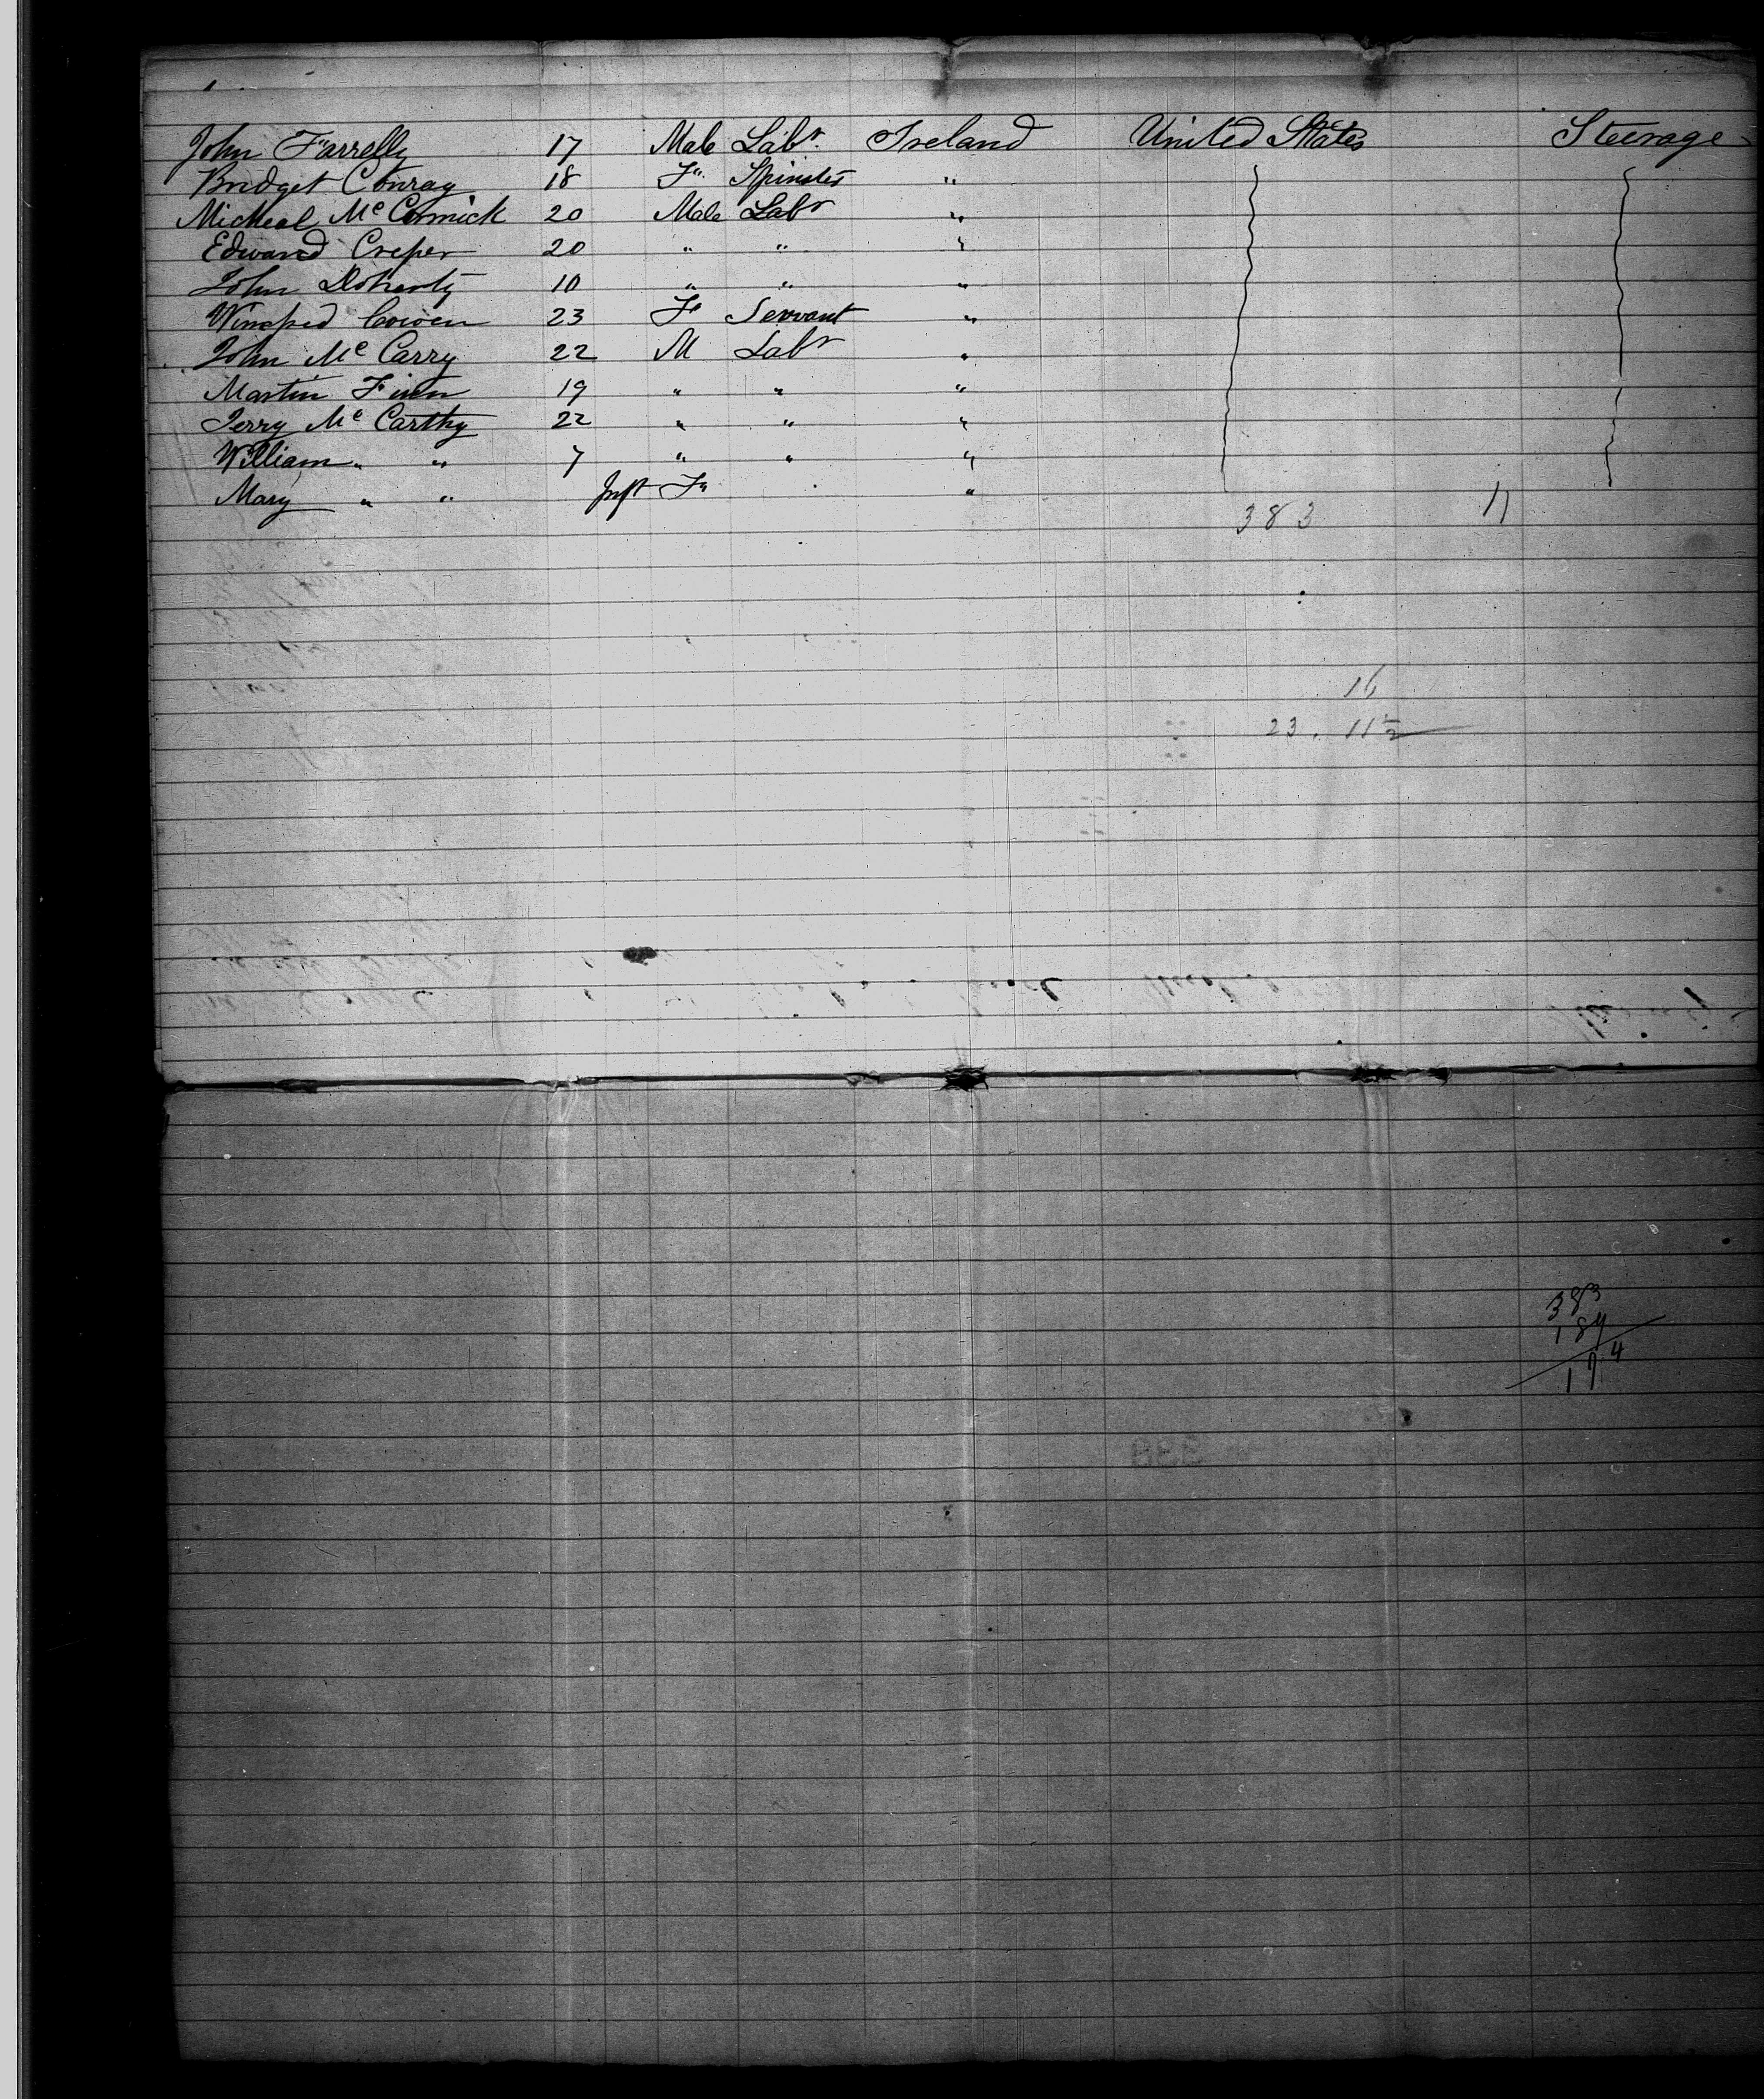 John Farrelly 17 Male Labr. Ireland United States Steerage
Bridget Conray 18 Fe. Spinster "
Micheal Mc Cormick 20 Male Labr "
Edward Creper 20 " " "
John Doherty 10 " " "
Winefred Cowen 23 Fe Servant "
John Mc Carry 22 M Labr "
Martin Finn 19 " " "
Jerry Mc Carthy 22 " " "
William " " 7 " " "
Mary " " Inft Fe "
383 11
16
23. 11½
383
189
194